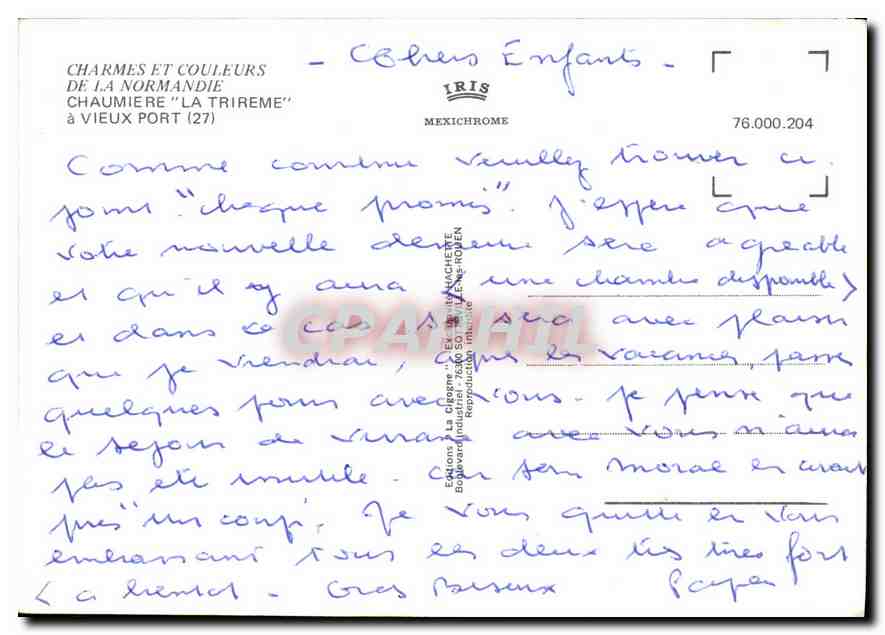 - Chers Enfants -
CHARMES ET COULEURS
DE LA NORMANDIE
CHAUMIERE "LA TRIREME"
à VIEUX PORT (27)
IRIS
MEXICHROME
76.000.204
Comme convenu veuillez trouver ci
joint "chèque promis". J'espère que
votre nouvelle demeure sera agréable
et qu'il y aura (une chambre disponible)
et dans ce cas ce sera avec plaisir
que je viendrai, après les vacances, passer
quelques jours avec vous. Je pense que
le séjour de avec vous n'aura
pas été inutile. Car son moral en avait
pris "un coup". Je vous quitte en vous
embrassant tous les deux très très fort
a bientot - Gros Baisers Papa
Editions La Cigogne HACHETTE
Boulevard Industriel - 76300 SOTTEVILLE-lès-ROUEN
Reproduction interdite
CPAPHIL